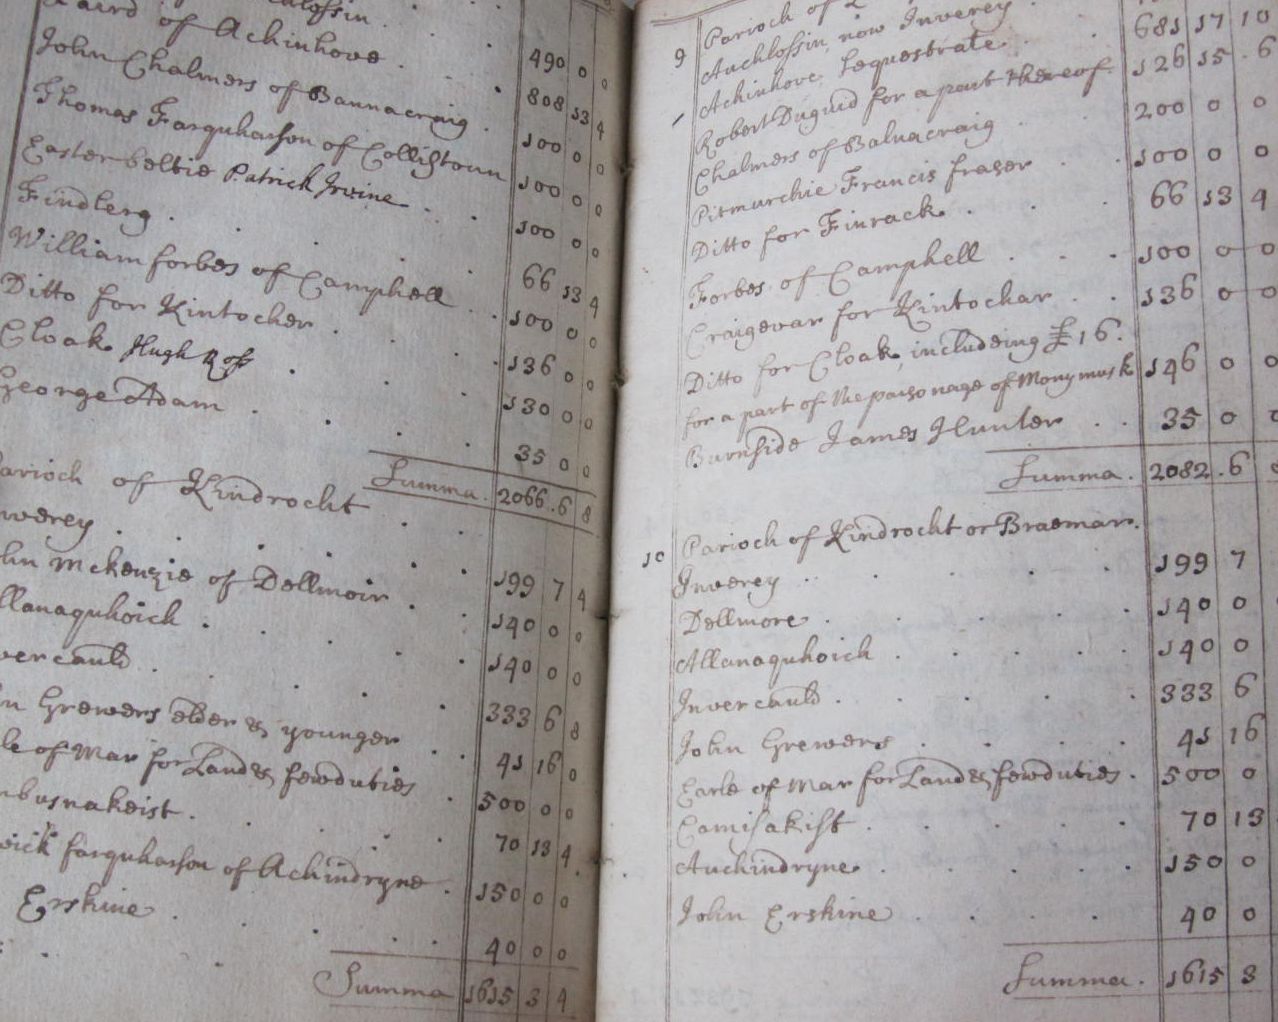 Laird of Achinhove . . . 490 0 0
John Chalmers of Bannacraig . 808 13 4
Thomas Farquharson of Collistoun 100 0 0
Easterbeltie Patrick Irvine . . 100 0 0
Findlerg . . . . 100 0 0
William forbes of Camphell . . 66 13 4
Ditto for Kintocher . . . 100 0 0
Cloak Hugh Ross . . . 136 0 0
George Adam . . . . 130 0 0
35 0 0
Summa . 2066 . 6 8
of Kindrocht . .
John McKenzie of Dellmoir . 199 7 4
. . . . 140 0 0
. . . . 140 0 0
Grewers elder & younger . . 333 6 8
of Mar for Land & fewduties . 41 16 0
. . . . 500 0 0
farquharson of Achindryne . 70 13 4
150 0 0
Erskine . . . . 40 0 0
Summa 1615 3 4
9 Parioch of
Auchlossin, now Inverey . 681 17 10
Achinhove Sequestrate . . 126 15 . 6
Robert Duguid for a part thereof 200 0 0
Chalmers of Balnacraig . . 100 0 0
Pitmurchie Francis fraser . . 66 13 4
Ditto for Finrack . . . 100 0 0
Forbes of Camphell . . . 136 0 0
Craigevar for Kintochar . .
Ditto for Cloak, including £ 16 .
for a part of the parsonage of Monymusk 146 0 0
Burnside James Hunter . . 35 0 0
Summa . 2082 . 6
10 Parioch of Kindrocht or Braemar .
Inverey . . . . . 199 7
Dellmore . . . . . 140 0
Allanaquhoich . . . . 140 0
Invercauld . . . . . 333 6
John Grewers . . . . 41 16
Earle of Mar for Land & fewduties . 500 0
Camisakist . . . . 70 13
Auchindryne . . . . . 150 0
John Erskine . . . . 40 0
Summa . 1615 3